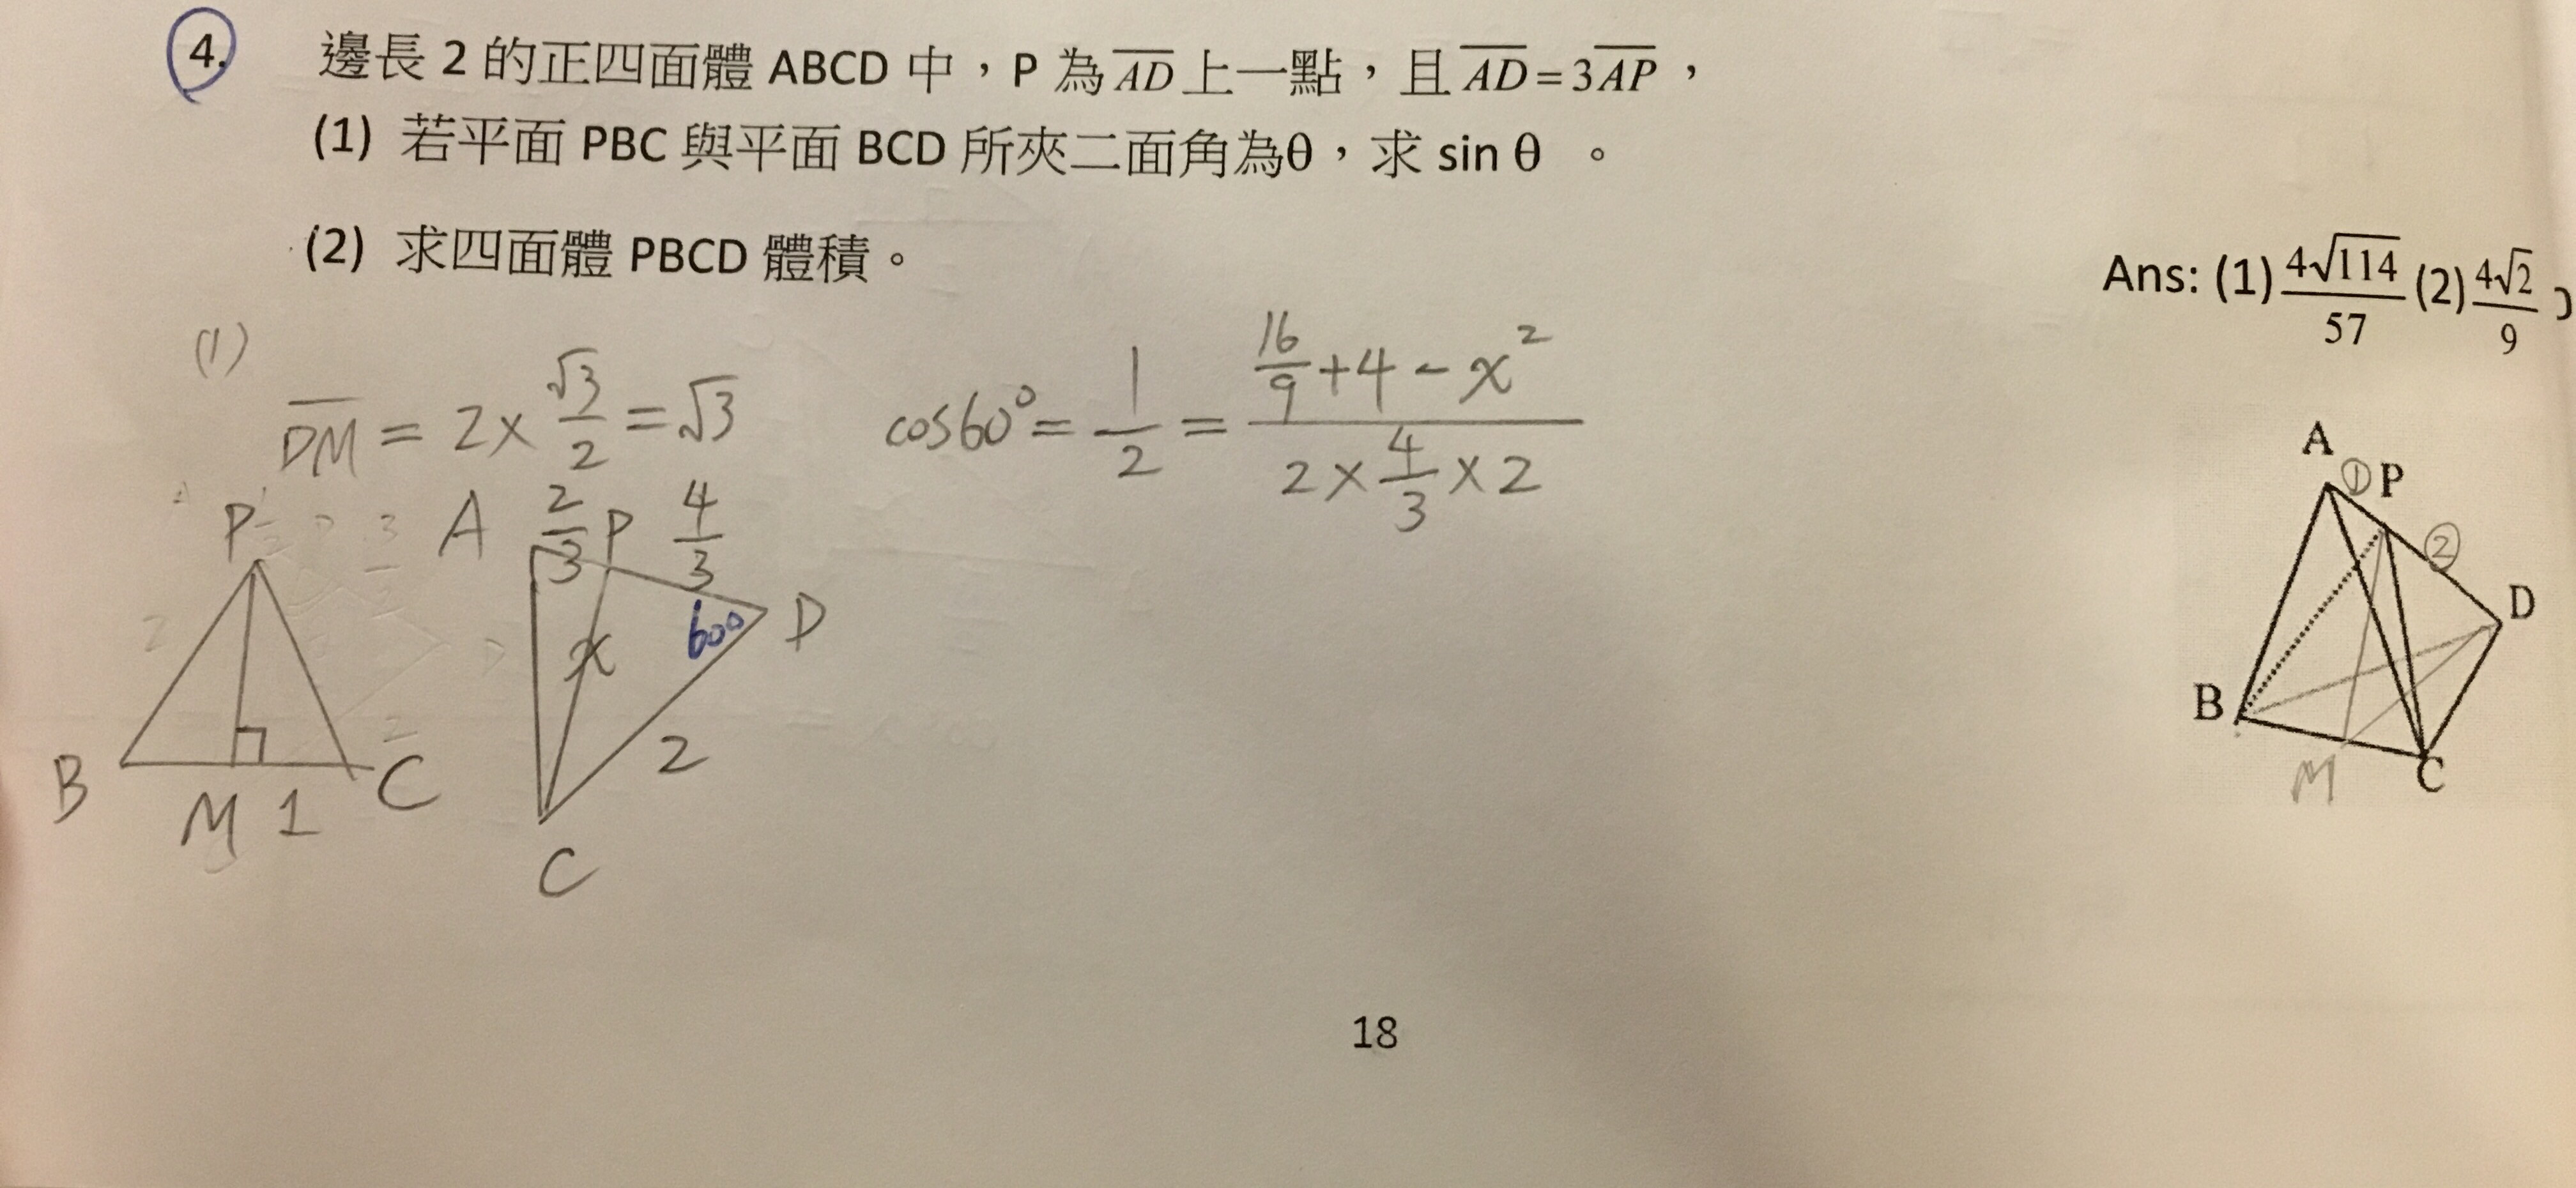 4. 邊長 2 的正四面體 ABCD 中，P 為 AD 上一點，且 AD = 3AP，
(1) 若平面 PBC 與平面 BCD 所夾二面角為θ，求 sin θ 。
(2) 求四面體 PBCD 體積。
Ans: (1) 4√114/57 (2) 4√2/9
(1)
DM = 2 × √3/2 = √3
cos60° = 1/2 = (16/9 + 4 - x²)/(2 × 4/3 × 2)
P
B M 1 C
A 2/3 P 4/3
x 60° D
2
C
A ① P
②
D
B
M C
18